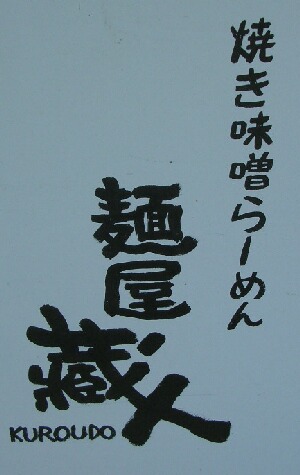 焼き味噌らーめん
麺屋
蔵人
KUROUDO